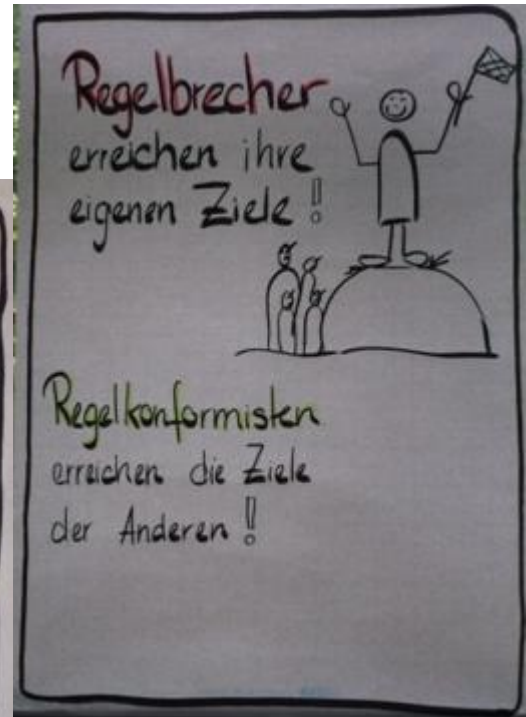 Regelbrecher
erreichen ihre
eigenen Ziele!
Regelkonformisten
erreichen die Ziele
der Anderen!